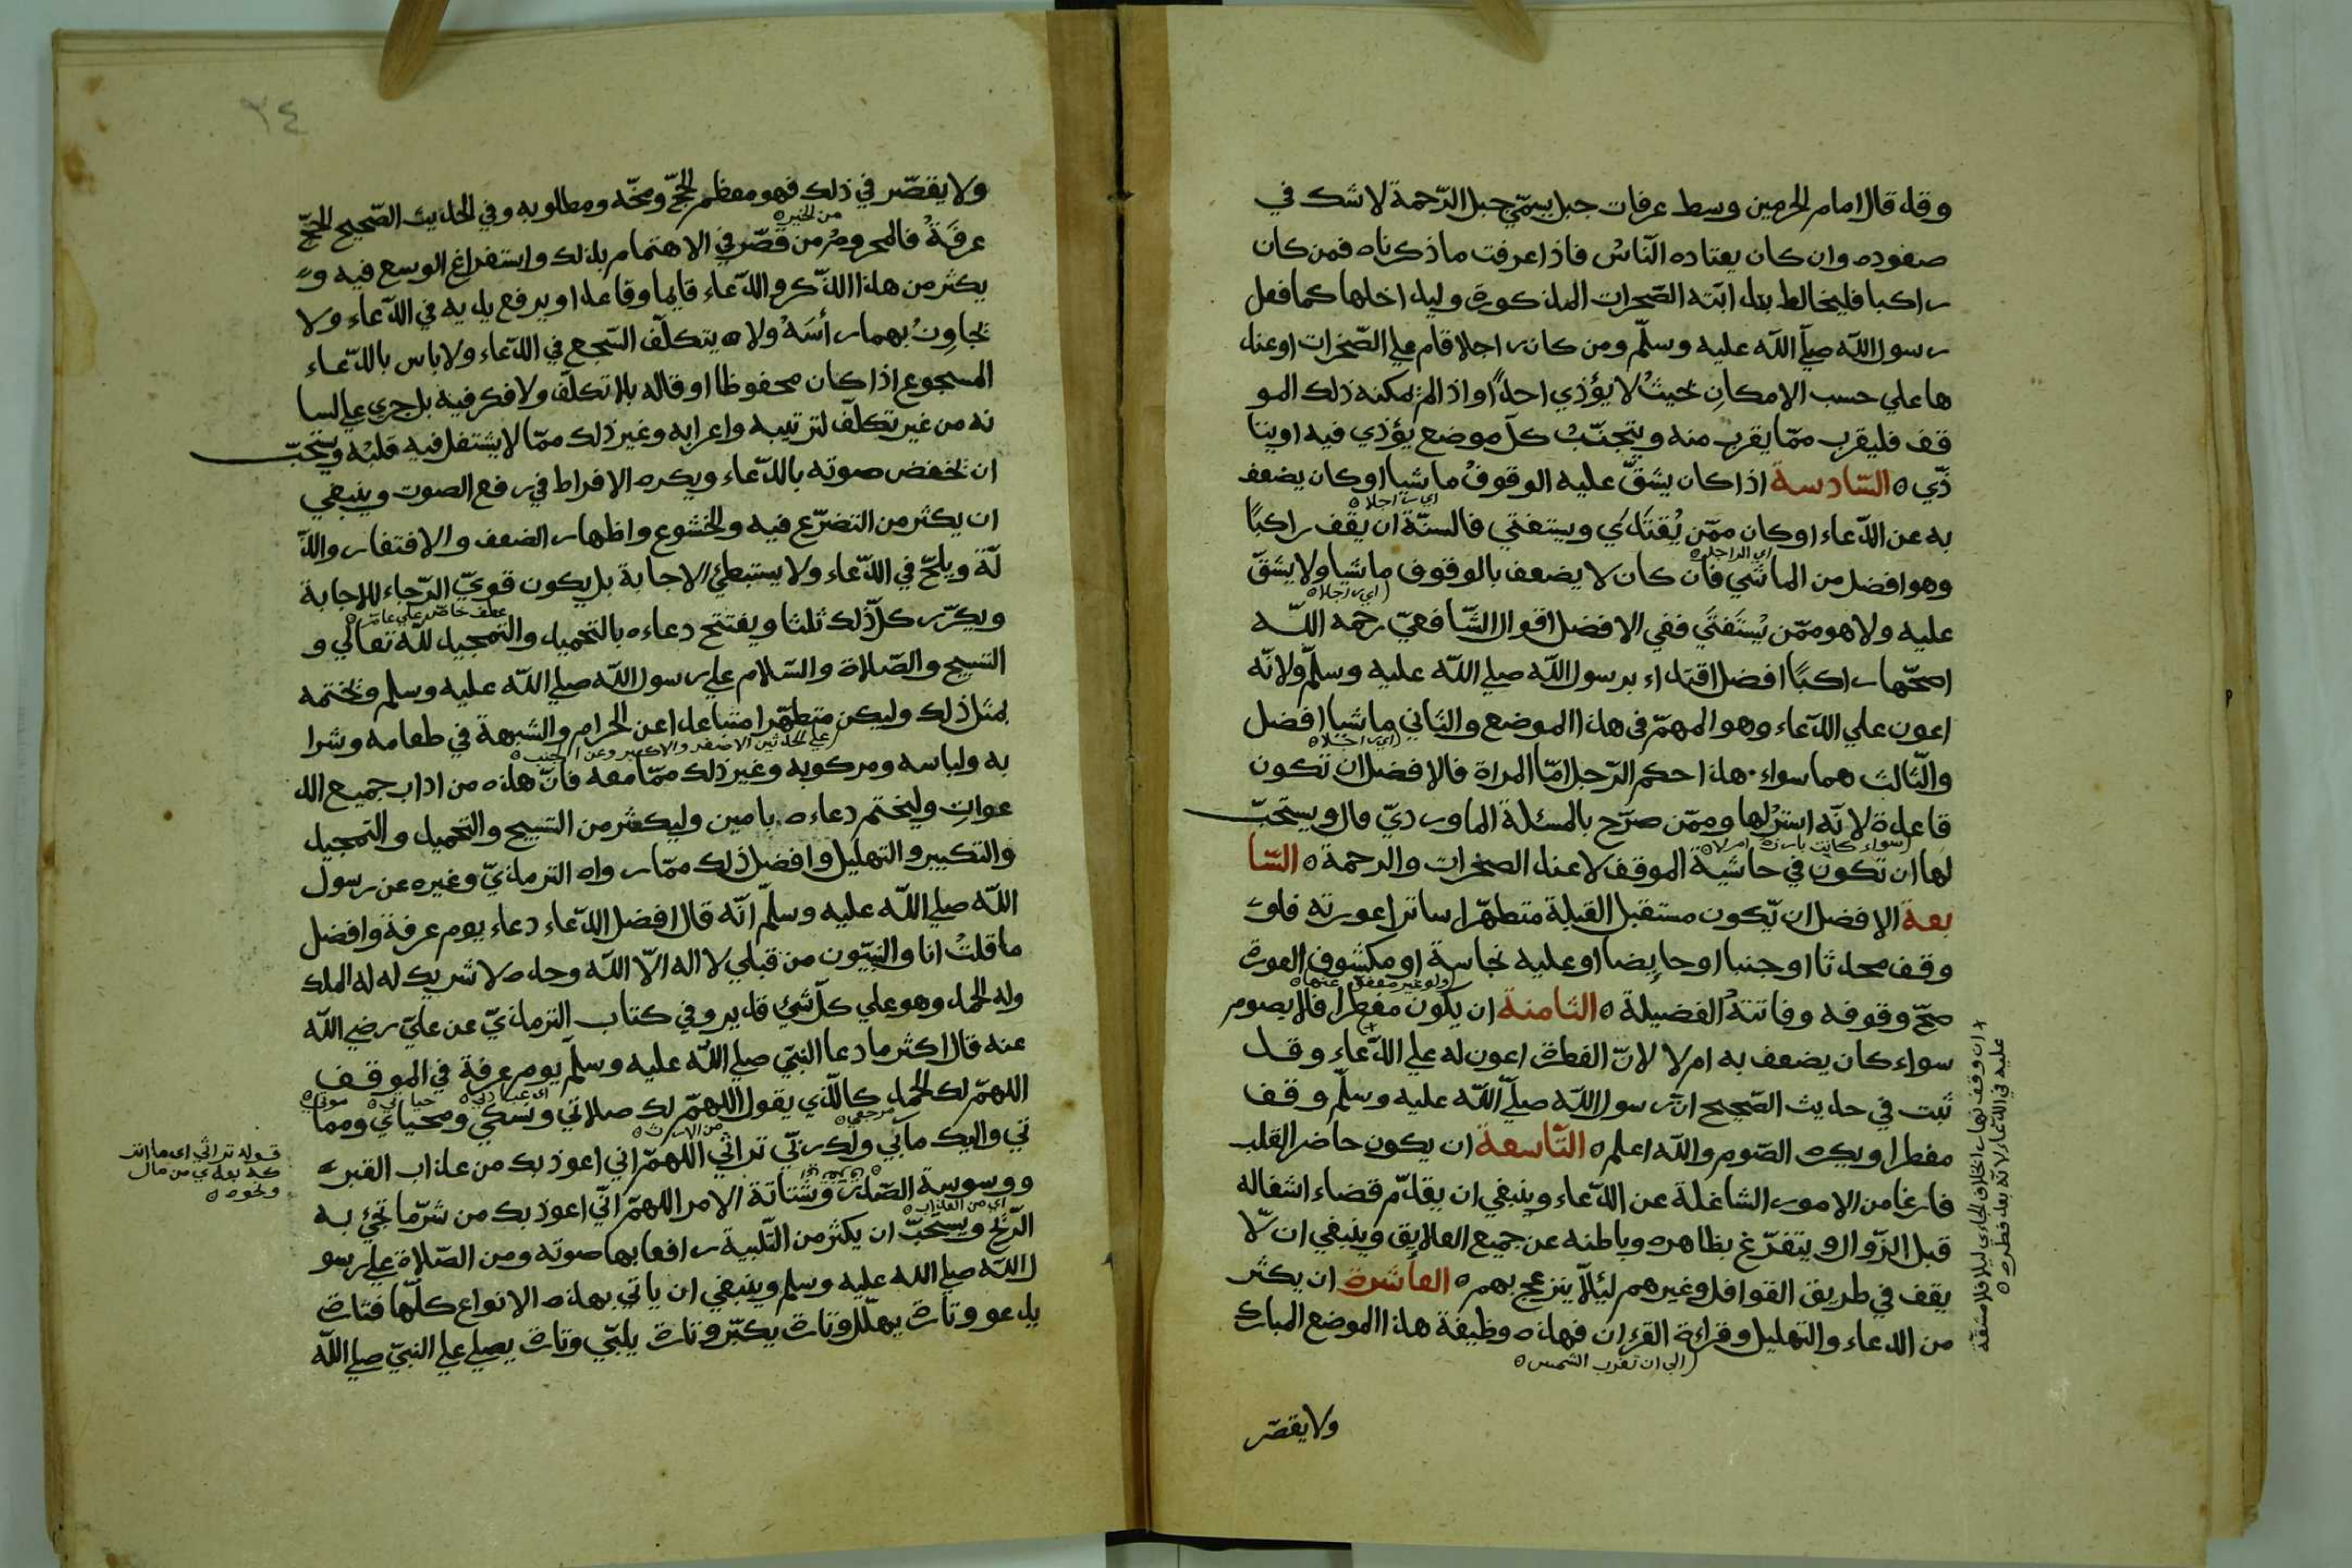 وقد قال امام الحرمين وسط عرفات جبل يسمّي جبل الرّحمة لا شك في
صعوده وان كان يعتاده النّاسُ فاذا عرفت ما ذكرناه فمن كان
راكبا فليخالط بدابّته الصّخرات المذكورة وليداخلها كما فعل
رسول اللّه صلّي اللّه عليه وسلّم ومن كان راجلا قام علي الصّخرات اوعند
ها علي حسب الامكانِ بحيثُ لا يؤذي احدًا واذا لم يمكنه ذلك المو
قف فليقرب ممّا يقرب منه ويتجنّبُ كلّ موضع يؤذي فيه او يتا
ذّي ه السّادسة اذا كان يشقّ عليه الوقوفُ ماشيا او كان يضعف
اي راجلا ه
به عن الدّعاء او كان ممّن يُقتَدَي ويستفتي فالسنّة ان يقف راكبًا
وهو افضل من الماشي فان كان لا يضعف بالوقوف ماشيا ولا يشقّ
اي الراجل ه
اي راجلا ه
عليه ولا هو ممّن يُستَفتَي ففي الافضل اقوال الشّافعيّ رحمه اللّه
اصحّها راكبًا افضل اقتداء برسول اللّه صلي اللّه عليه وسلّم ولانّه
اعون علي الدّعاء وهو المهمّ في هذا الموضع والثاني ماشيا افضل
اي راجلا ه
والثّالث هما سواء هذا حكم الرّجل امّا المراة فالافضل ان تكون
قاعدة لانّه استرُ لها وممّن صرّح بالمسئلة الماورديّ قال ويستحبّ
لها ان تكون في حاشية الموقف لا عند الصخرات والرحمة ه السّا
سواء كانت بارزة ام لا ه
بعة الافضل ان يّكون مستقبل القبلة متطهّرا ساترا عورته فلو
وقف محدثا او جنبا او حايضا او عليه نجاسة او مكشوف العورة
صحّ وقوفه وفاتتهُ الفضيلة ه الثامنة ان يكون مفطرا فلا يصوم
سواء كان يضعف به ام لا لانّ الفطرة اعون له علي الدّعاء وقد
ثبت في حديث الصّحيح انّ رسول اللّه صلّي اللّه عليه وسلّم وقف
مفطرا ويكره الصّوم واللّه اعلم ه التّاسعة ان يكون حاضر القلب
فارغا من الامور الشاغلة عن الدّعاء وينبغي ان يقدّم قضاء اشغاله
قبل الزّوال ويتفرّغ بظاهره وباطنه عن جميع العلايق وينبغي ان لّا
يقف في طريق القوافل وغيرهم لئلّا ينزعج بهم ه العاشرة ان يكثر
من الدعاء والتهليل وقراءة القرءان فهذه وظيفة هذا الموضع المبارك
الي ان تغرب الشمس ه
ان وقف نهارا بخلاف الجاءي ليلا فلا مشقّة
عليه في الدّعاء لانّه بعد فطره ه
ولا يقصّر
٣٤
ولا يقصّر في ذلك فهو معظم الحجّ ومخّه ومطلوبه وفي الحديث الصّحيح الحجّ
عرفَةُ فالمحرومُ من قصّر في الاهتمام بذلك واستفراغ الوسع فيه و
من الخير ه
يكثر من هذا الذّكر والدّعاء قايما وقاعدا ويرفع يديه في الدّعاء ولا
يجاوِزُ بهما رأسَهُ ولا يتكلّف السّجع في الدّعاء ولا باس بالدّعاء
المسجوع اذا كان محفوظا او قاله بلا تكلّف ولا فكر فيه بل جري علي لسا
نه من غير تكلّف لترتيبه واعرابه وغير ذلك ممّا لا يشتغل فيه قلبُه ويستحبّ
ان يخفض صوته بالدّعاء ويكره الافراط في رفع الصوت وينبغي
ان يكثر من التضرّع فيه والخشوع واظهار الضعف والافتقار والذّ
لّة ويلحّ في الدّعاء ولا يستبطئ الاجابة بل يكون قويّ الرّجاء للاجابة
ويكرّر كلّ ذلك ثلثا ويفتتح دعاءه بالتحميد والتمجيد للّه تعالي و
عطف خاصّ علي عامّ ه
التسبيح والصّلاة والسّلام علي رسول اللّه صلي اللّه عليه وسلم ويختمه
بمثل ذلك وليكن متطهّرا متباعدا عن الحرام والشبهة في طعامه وشرا
علي الحدثين الاصغر والاكبر
به ولباسه ومركوبه وغير ذلك ممّا معه فانّ هذه من اداب جميع الد
عواتِ وليختم دعاءه بامين وليكثر من التسبيح والتحميد والتمجيد
والتكبير والتهليل وافضل ذلك ممّا رواه الترمذيّ وغيره عن رسول
اللّه صلي اللّه عليه وسلّم انّه قال افضل الدّعاء دعاء يوم عرفة وافضل
ما قلتُ انا والنبيّون من قبلي لا اله الّا اللّه وحده لا شريك له له الملك
وله الحمد وهو علي كلّ شئ قدير وفي كتاب الترمذيّ عن عليّ رضي اللّه
عنه قال اكثر ما دعا النبيّ صلي اللّه عليه وسلّم يوم عرفة في الموقف
اللهمّ لك الحمد كالّذي يقول اللهمّ لك صلاتي ونسكي ومحياي ومما
اي عبادتي ه
حياتي ه
موتي ه
تي واليك مآبي ولك ربّي تراثي اللهمّ اني اعوذ بك من عذاب القبر
مرجعي ه
من الارث ه
ووسوسة الصّدر وشتاتة الامر اللهمّ انّي اعوذ بك من شرّ ما تجئ به
الرّيح ويستحبّ ان يكثر من التّلبية رافعا بها صوته ومن الصّلاة علي رسو
اي من العذاب ه
ل اللّه صلي اللّه عليه وسلم وينبغي ان ياتي بهذه الانواع كلّها فتارة
يدعو وتارة يهلّل وتارة يكبّر وتارة يلبّي وتارة يصلي علي النبيّ صلي اللّه
قوله تراثي اي ما اتر
كه بعدي من مال
ونحوه ه